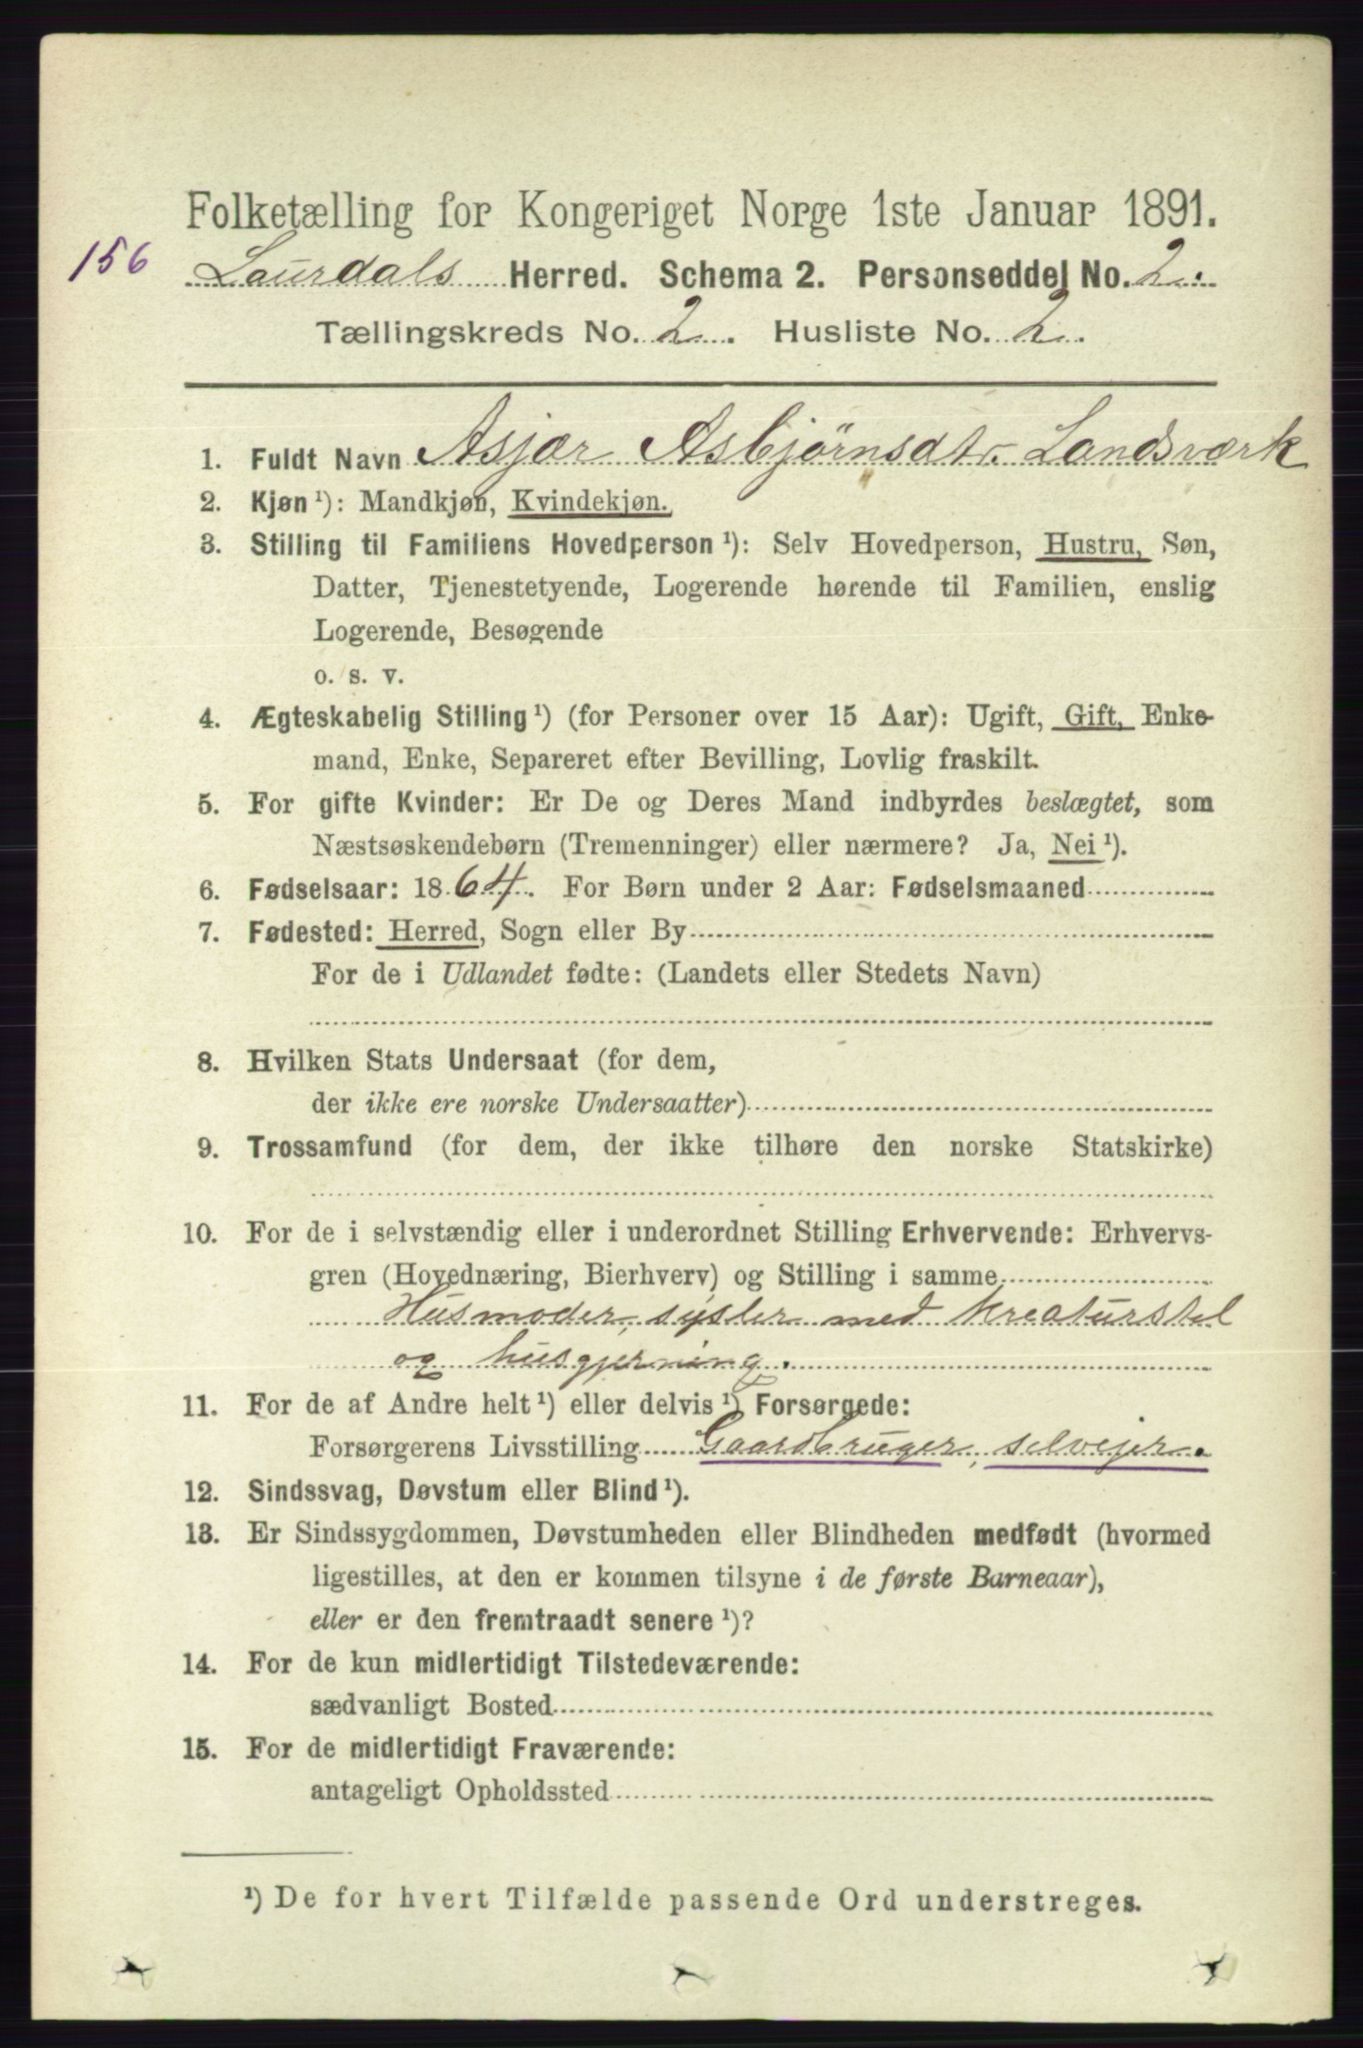 Folketælling for Kongeriget Norge 1ste Januar 1891.
156
Laurdals Herred. Schema 2. Personseddel No. 2.
Tællingskreds No. 2. Husliste No. 2.
1. Fuldt Navn Asjær Asbjørnsdtr. Landsværk
2. Kjøn ¹): Mandkjøn, Kvindekjøn.
3. Stilling til Familiens Hovedperson ¹): Selv Hovedperson, Hustru, Søn,
Datter, Tjenestetyende, Logerende hørende til Familien, enslig
Logerende, Besøgende
o. s. v.
4. Ægteskabelig Stilling ¹) (for Personer over 15 Aar): Ugift, Gift, Enke-
mand, Enke, Separeret efter Bevilling, Lovlig fraskilt.
5. For gifte Kvinder: Er De og Deres Mand indbyrdes beslægtet, som
Næstsøskendebørn (Tremenninger) eller nærmere? Ja, Nei ¹).
6. Fødselsaar: 1864. For Børn under 2 Aar: Fødselsmaaned
7. Fødested: Herred, Sogn eller By
For de i Udlandet fødte: (Landets eller Stedets Navn)
8. Hvilken Stats Undersaat (for dem,
der ikke ere norske Undersaatter)
9. Trossamfund (for dem, der ikke tilhøre den norske Statskirke)
10. For de i selvstændig eller i underordnet Stilling Erhvervende: Erhvervs-
gren (Hovednæring, Bierhverv) og Stilling i samme
Husmoder, sysler med kreaturstel
og husgjerning.
11. For de af Andre helt ¹) eller delvis ¹) Forsørgede:
Forsørgerens Livsstilling Gaardbruger, selvejer.
12. Sindssvag, Døvstum eller Blind ¹).
13. Er Sindssygdommen, Døvstumheden eller Blindheden medfødt (hvormed
ligestilles, at den er kommen tilsyne i de første Barneaar),
eller er den fremtraadt senere ¹)?
14. For de kun midlertidigt Tilstedeværende:
sædvanligt Bosted
15. For de midlertidigt Fraværende:
antageligt Opholdssted
¹) De for hvert Tilfælde passende Ord understreges.